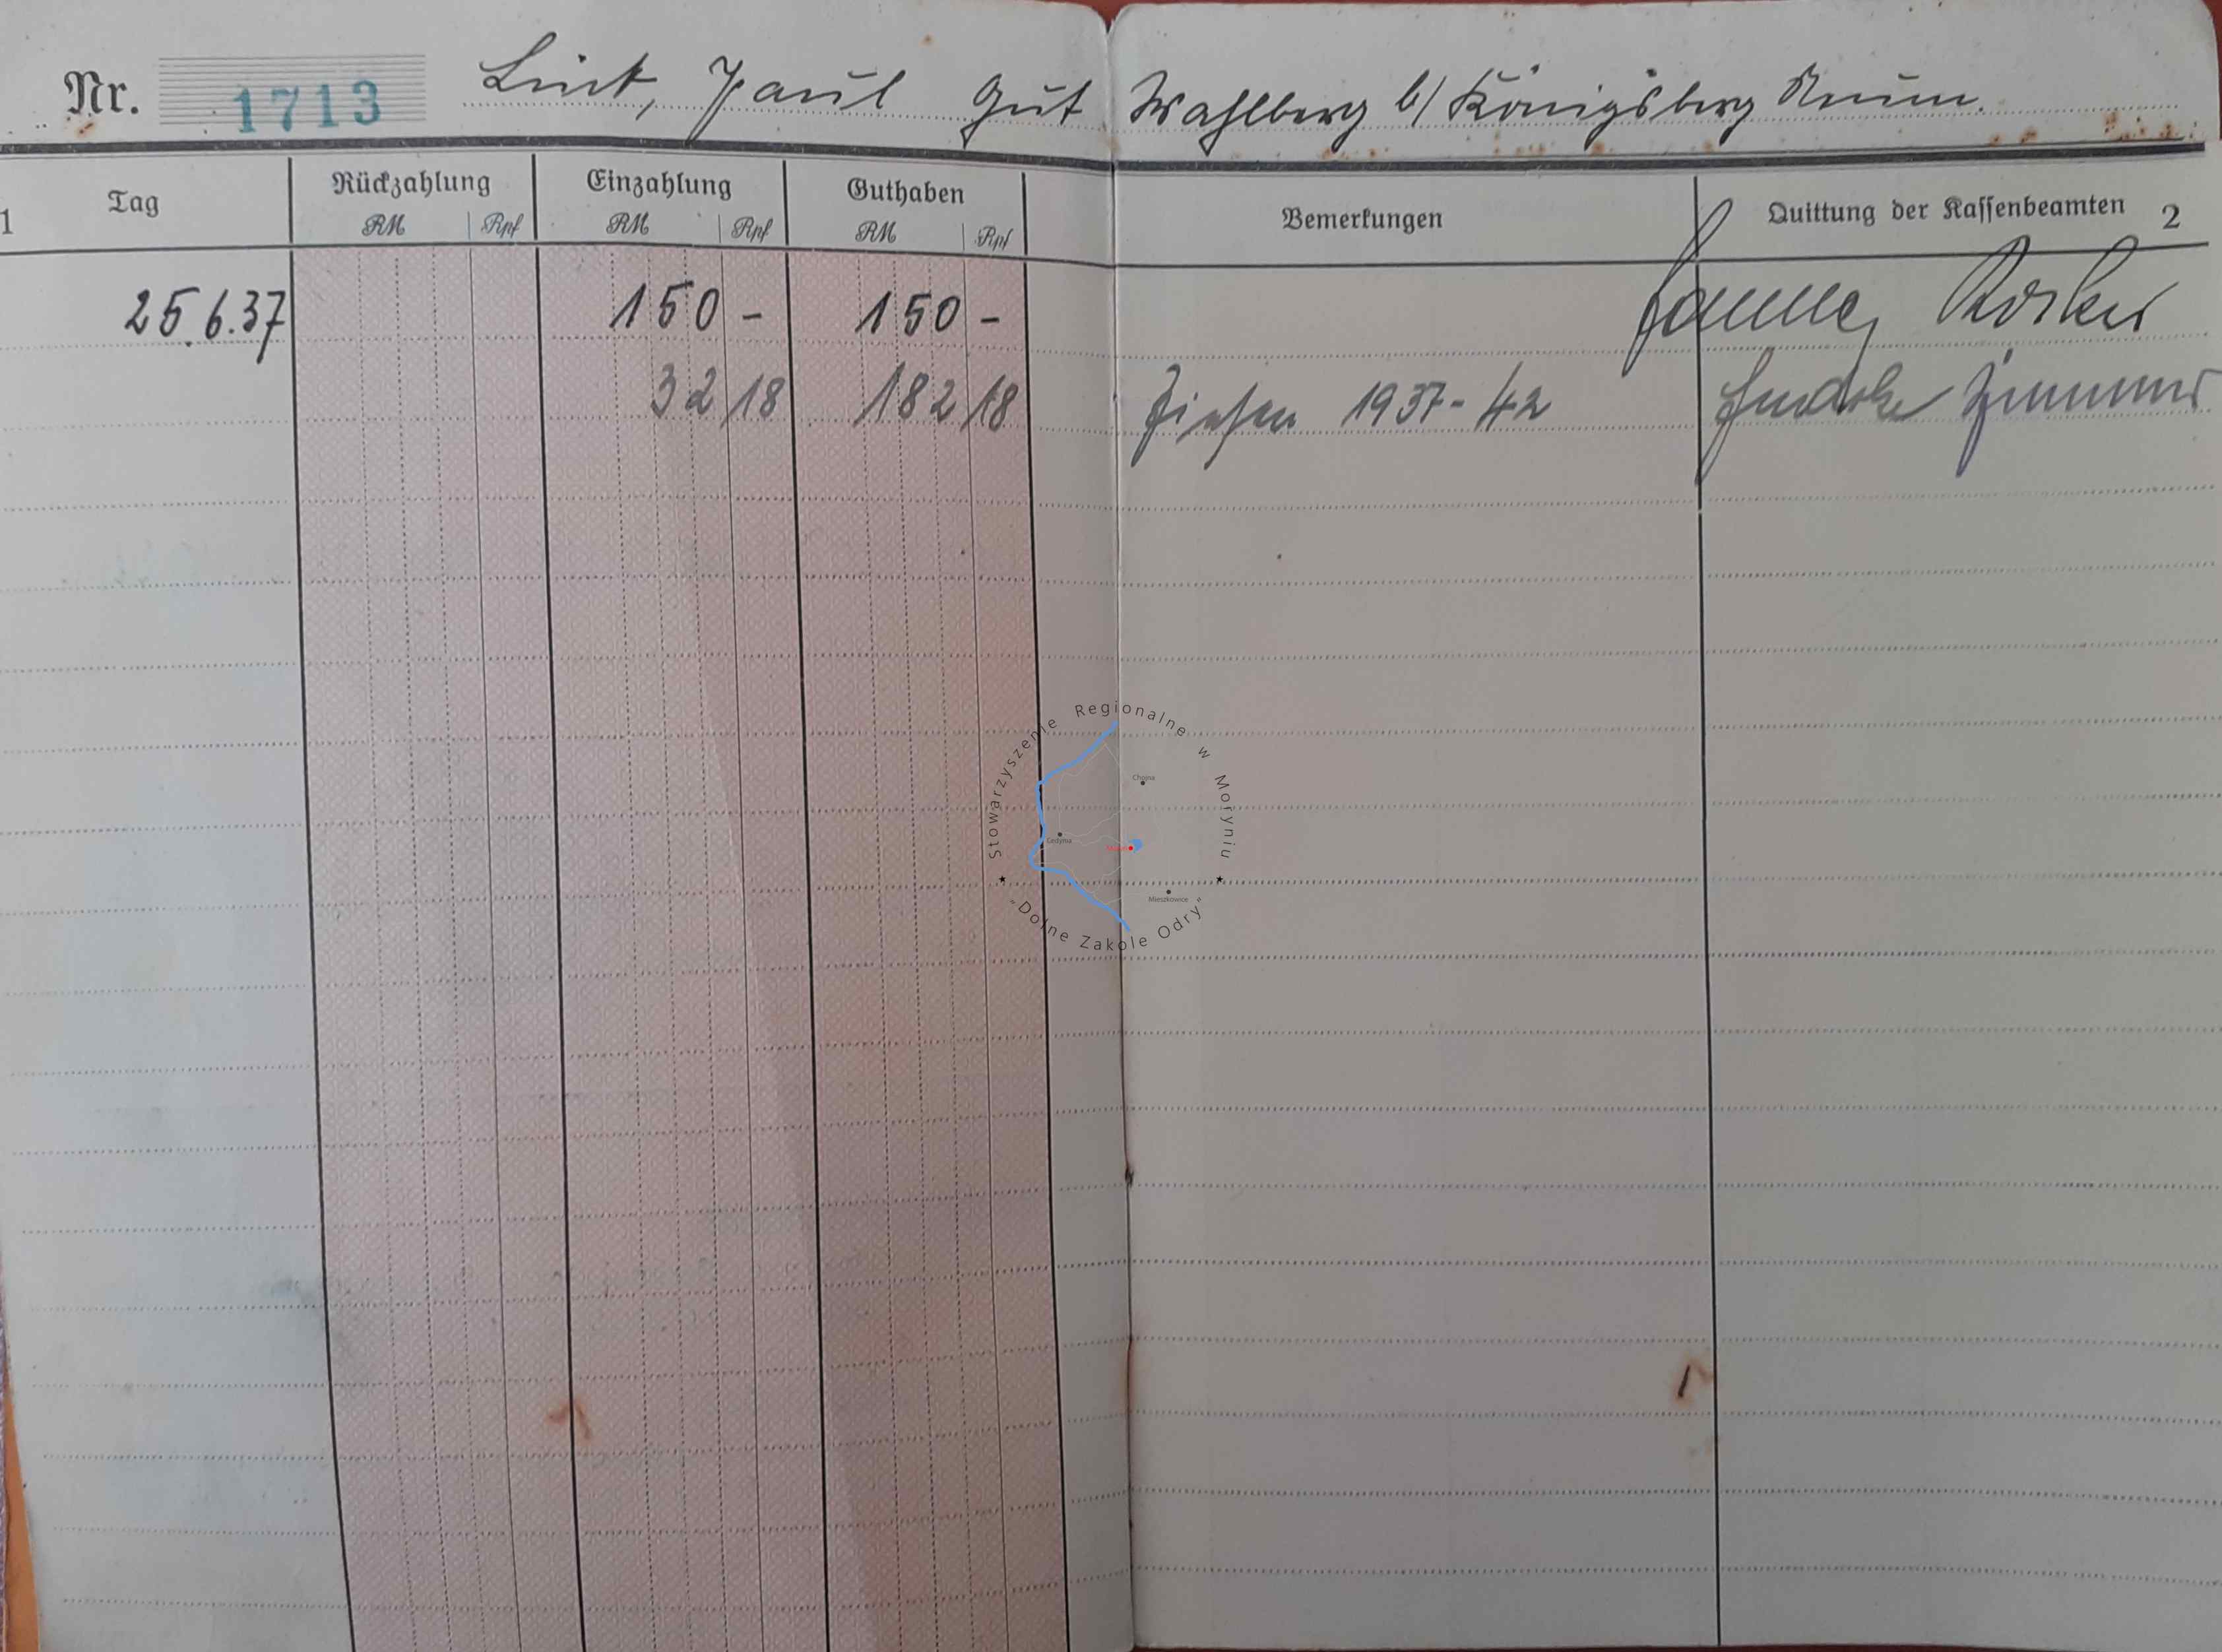 Nr. 1713 Paul Gut Wahlberg b/ Königsberg Neum.
1 Tag Rückzahlung Einzahlung Guthaben Bemerkungen Quittung der Kassenbeamten 2
RM Rpf RM Rpf RM Rpf
25.6.37 150 - 150 -
32 18 182 18 Zinsen 1937-42
Stowarzyszenie Regionalne w Moryniu
Chojna
Cedynia
Moryń
Mieszkowice
"Dolne Zakole Odry"